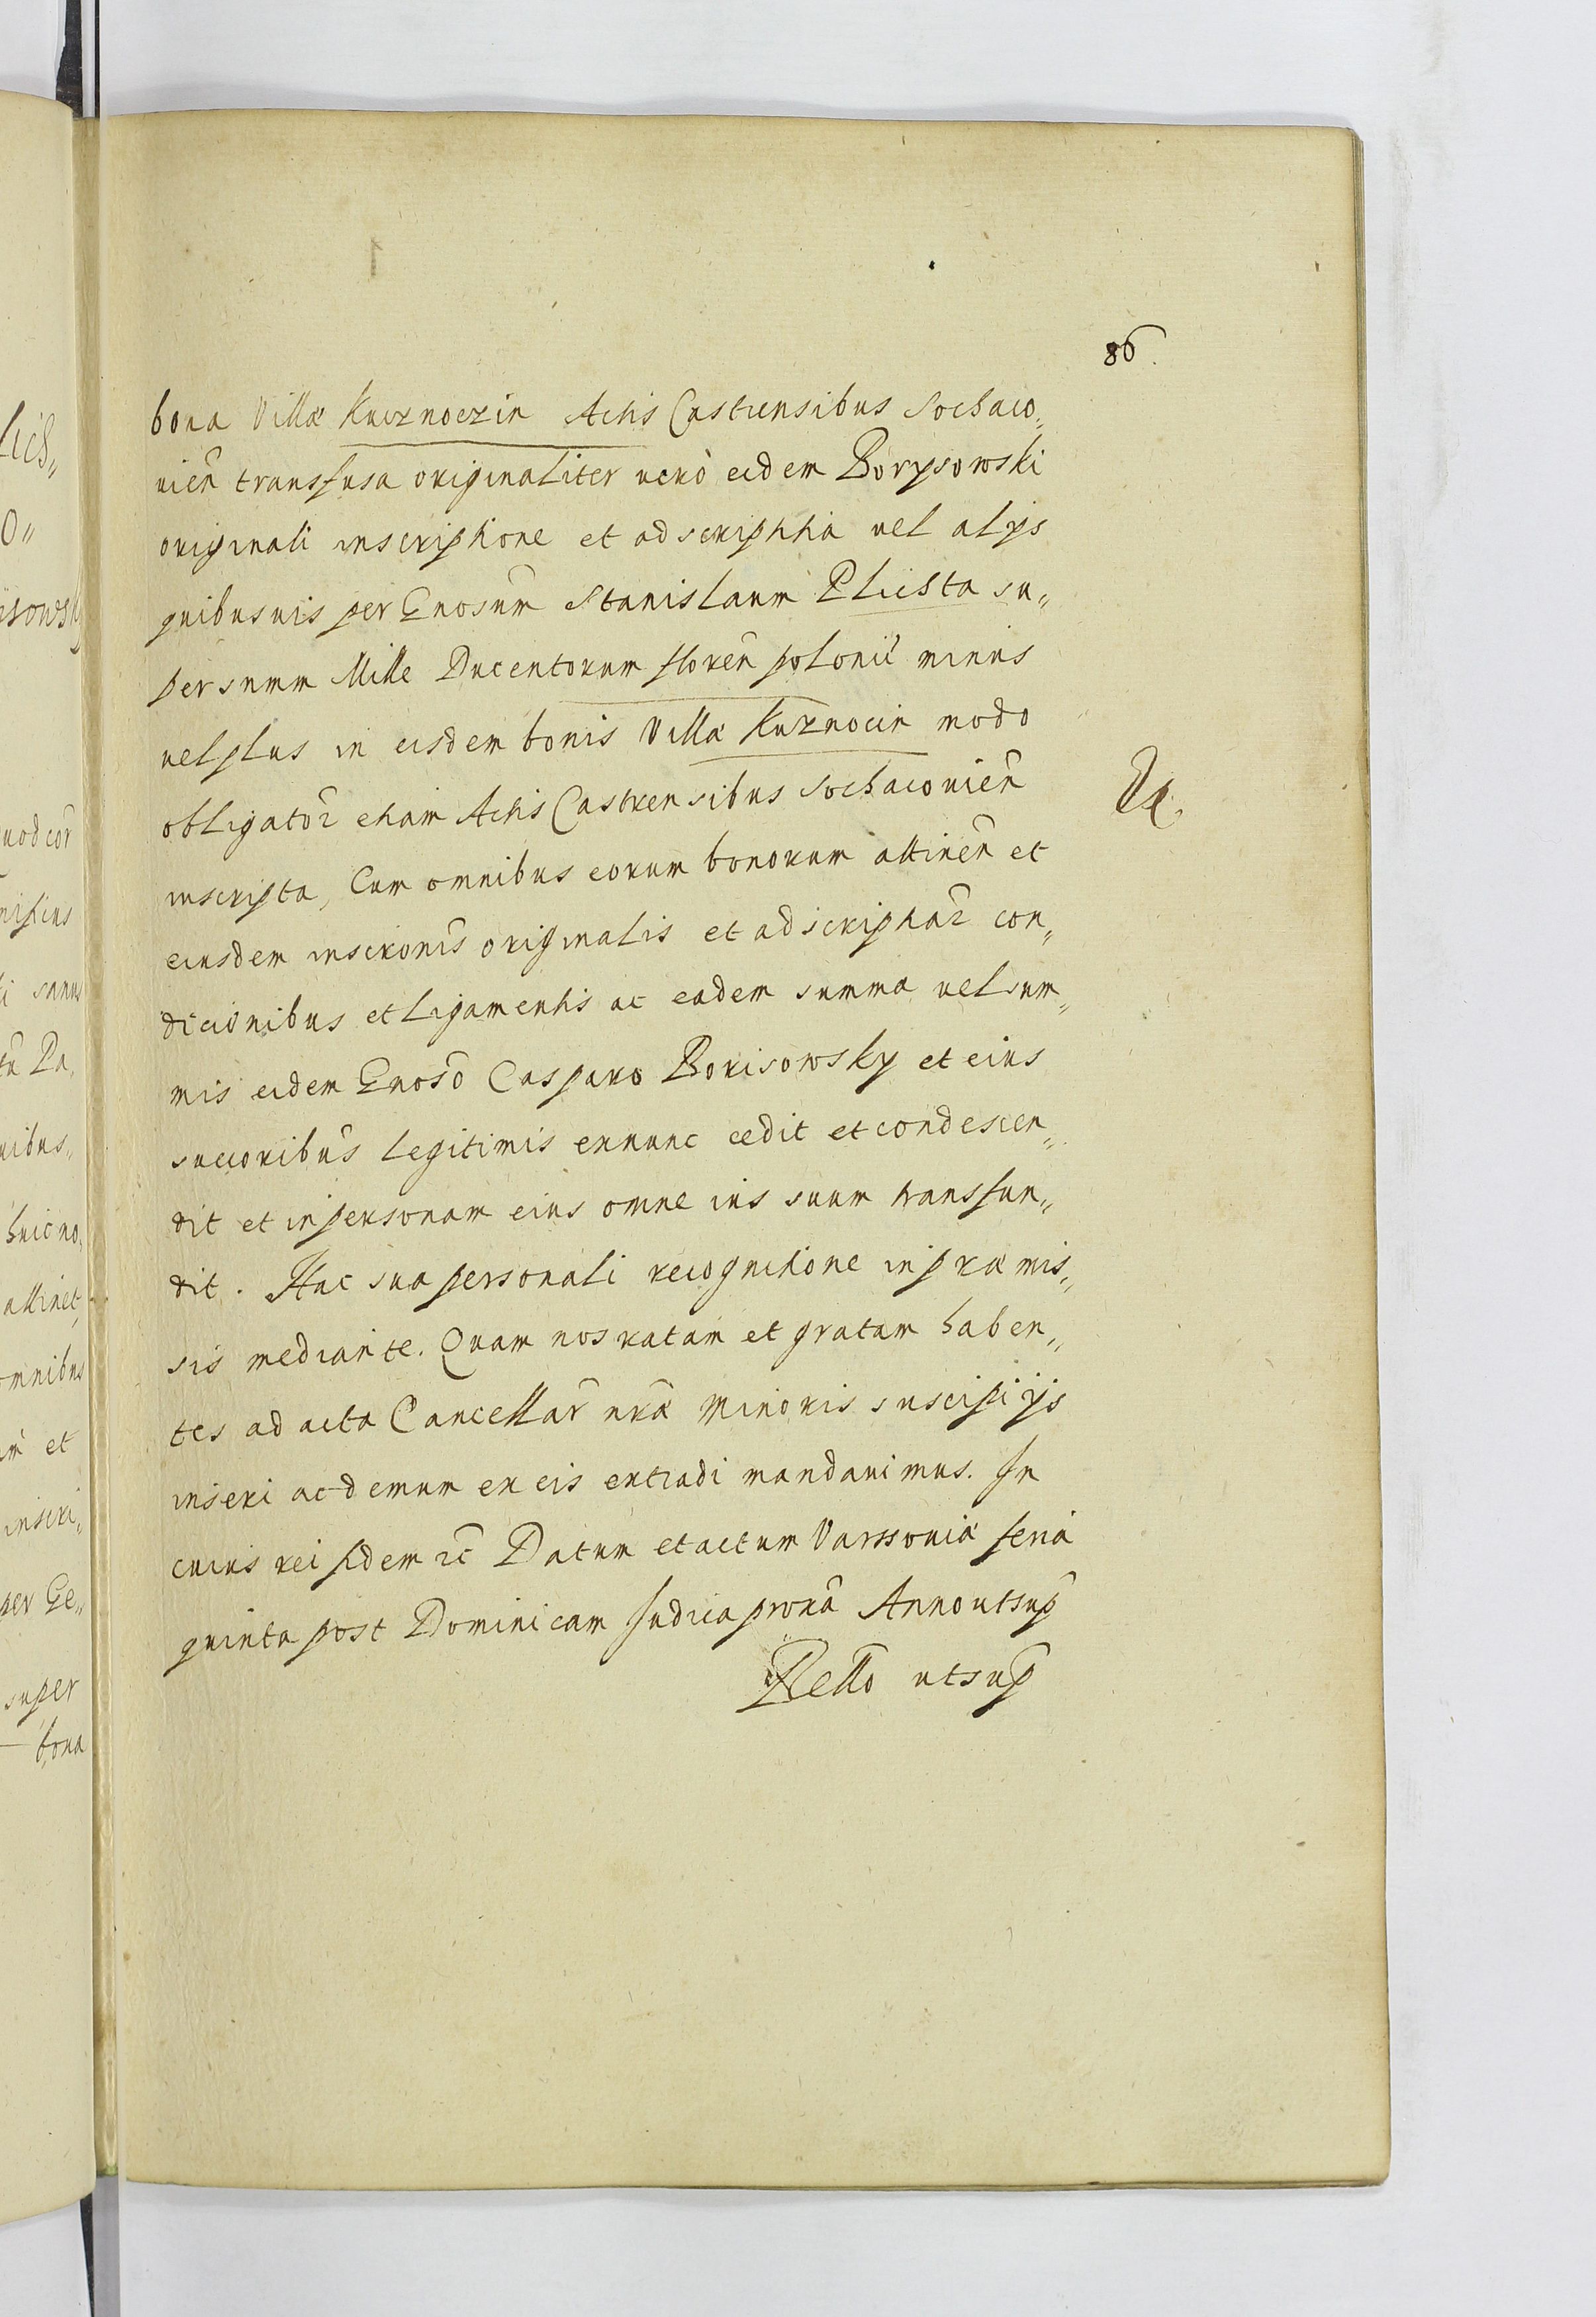 86.
bona Villæ Kucznoczin Actis Castrensibus Sochaco„
uien̄ transfusa originaliter uerò eidem Borysowski
originali inscriptione et adscriptitia uel alijs
quibusuis per Gnosum̄ Stanislaum Plichta su„
per summ Mille Ducentorum floren̄ polonic̄ minus
uel plus in eisdem bonis Villæ Kuznocin modo
obligator̄ etiam Actis Castrensibus Sochaconien̄
inscripta, Cum omnibus eorum bonorum attinen̄ et
eiusdem inscronis̄ originalis et adscriptiar̄ con„
dicionibus et ligamentis ac eadem summa uel sum„
mis eidem Gnosō Casparo Borisowsky et eius
succoribus̄ legitimis exnunc cedit et condescen„
dit et in personam eius omne ius suum transfun„
dit. Hac sua personali recognitione in præmis„
sis mediante. Quam nos ratam et gratam haben„
tes ad acta Cancellar̄ nr̄æ Minoris suscipi ijs
inseri ac demum ex eis extradi mandauimus. In
cuius rei fidem &c̄ Datum et actum Varssouiæ feria
quinta post Dominicam Judica proxā Anno utsup̄
Rello utsup̄
Lich„
o„
isowsky
uod cor̄
i sanus
uibus„
huic no„
attinet,
omnibus
m̄ et
inscri„
per Ge„
super
bona